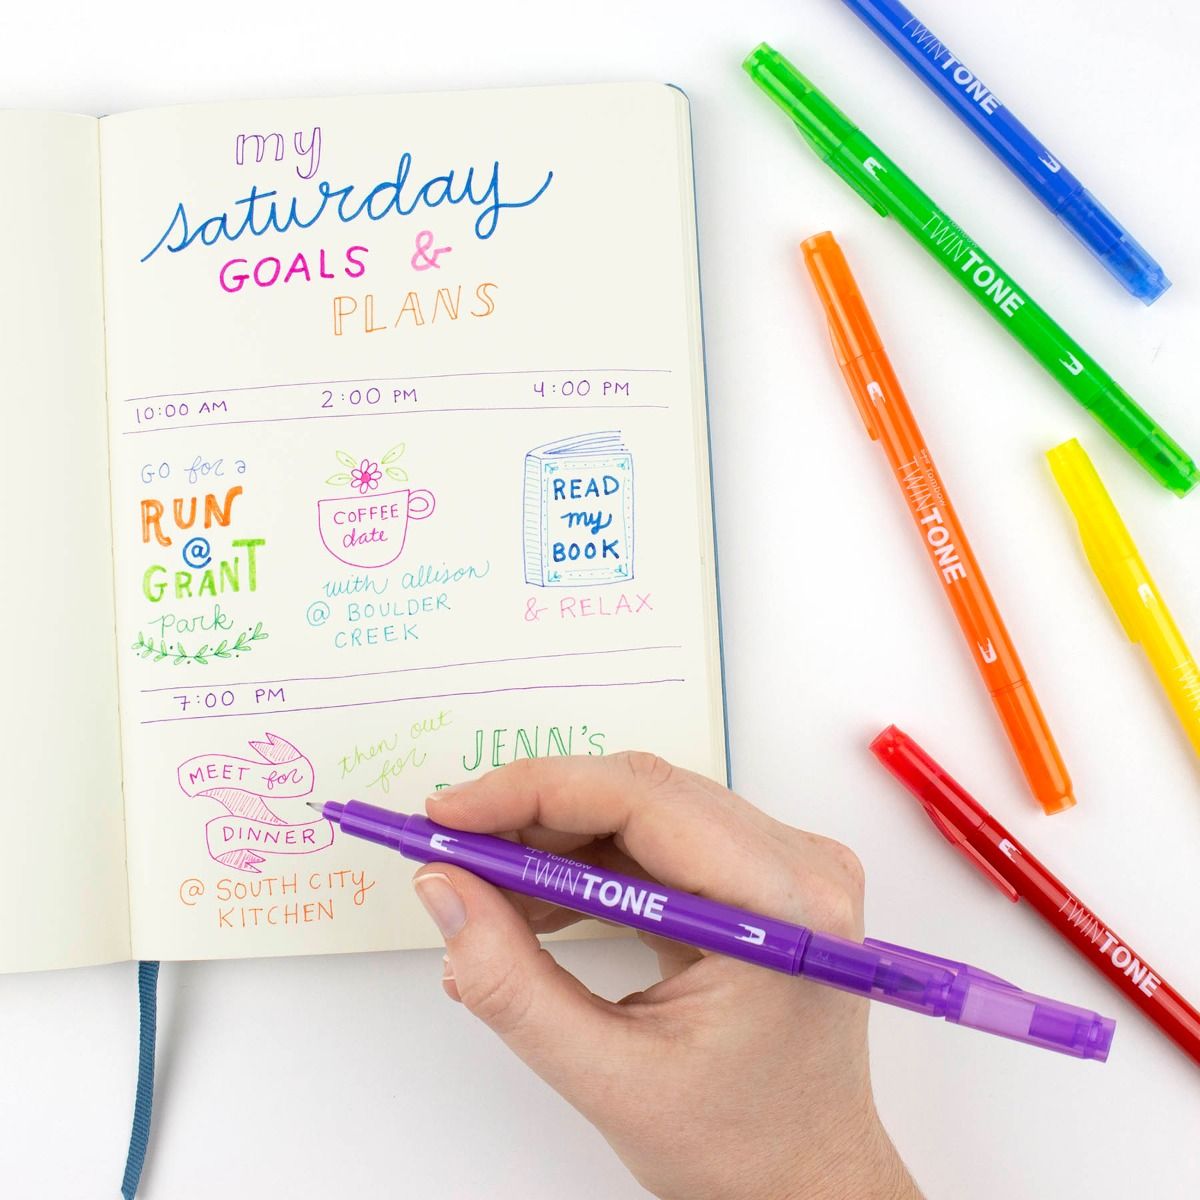 my
saturday
GOALS &
PLANS
10:00 AM
2:00 PM
4:00 PM
GO for a
RUN
@
GRANT
Park
COFFEE
date
with allison
@ BOULDER
CREEK
READ
my
BOOK
& RELAX
7:00 PM
MEET for
DINNER
@ SOUTH CITY
KITCHEN
then out
for
JENN'S
TWINTONE
Tombow
TWINTONE
Tombow
TWINTONE
TWINTONE
Tombow
TWINTONE